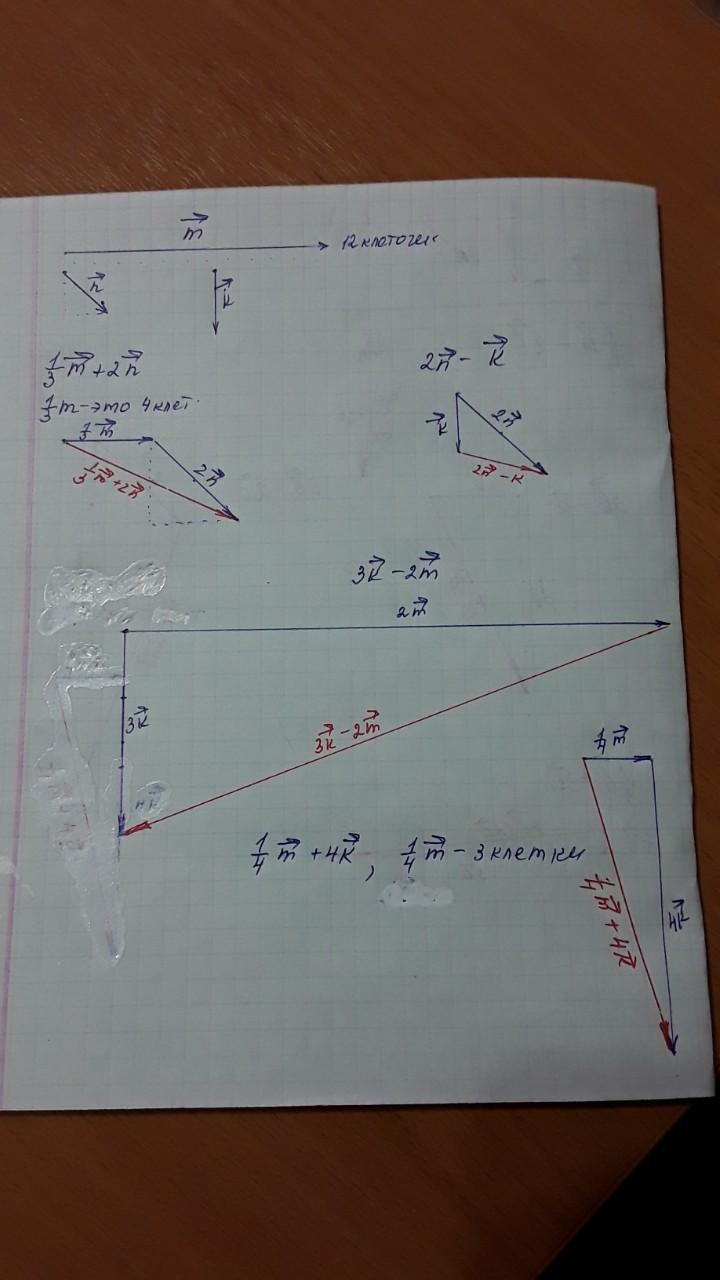 m⃗
12 клеточек
n⃗
k⃗
1/3 m⃗ + 2n⃗
2n⃗ - k⃗
1/3 m - это 4 клет.
1/3 m⃗
2n⃗
1/3 m⃗ + 2n⃗
k⃗
2n⃗
2n⃗ - k
3k⃗ - 2m⃗
2m⃗
3k⃗
3k⃗ - 2m⃗
1/4 m⃗
1/4 m⃗ + 4k⃗, 1/4 m⃗ - 3 клетки
1/4 m⃗ + 4k⃗
4k⃗